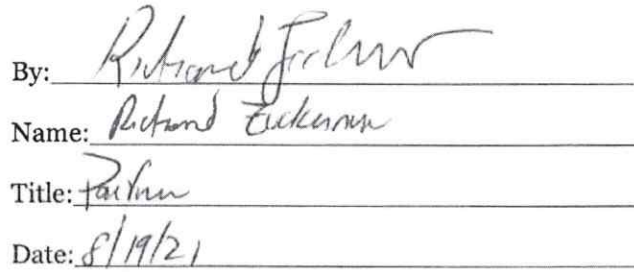 By: Richard
Name: Richard Zuckerman
Title: Partner
Date: 8/19/21